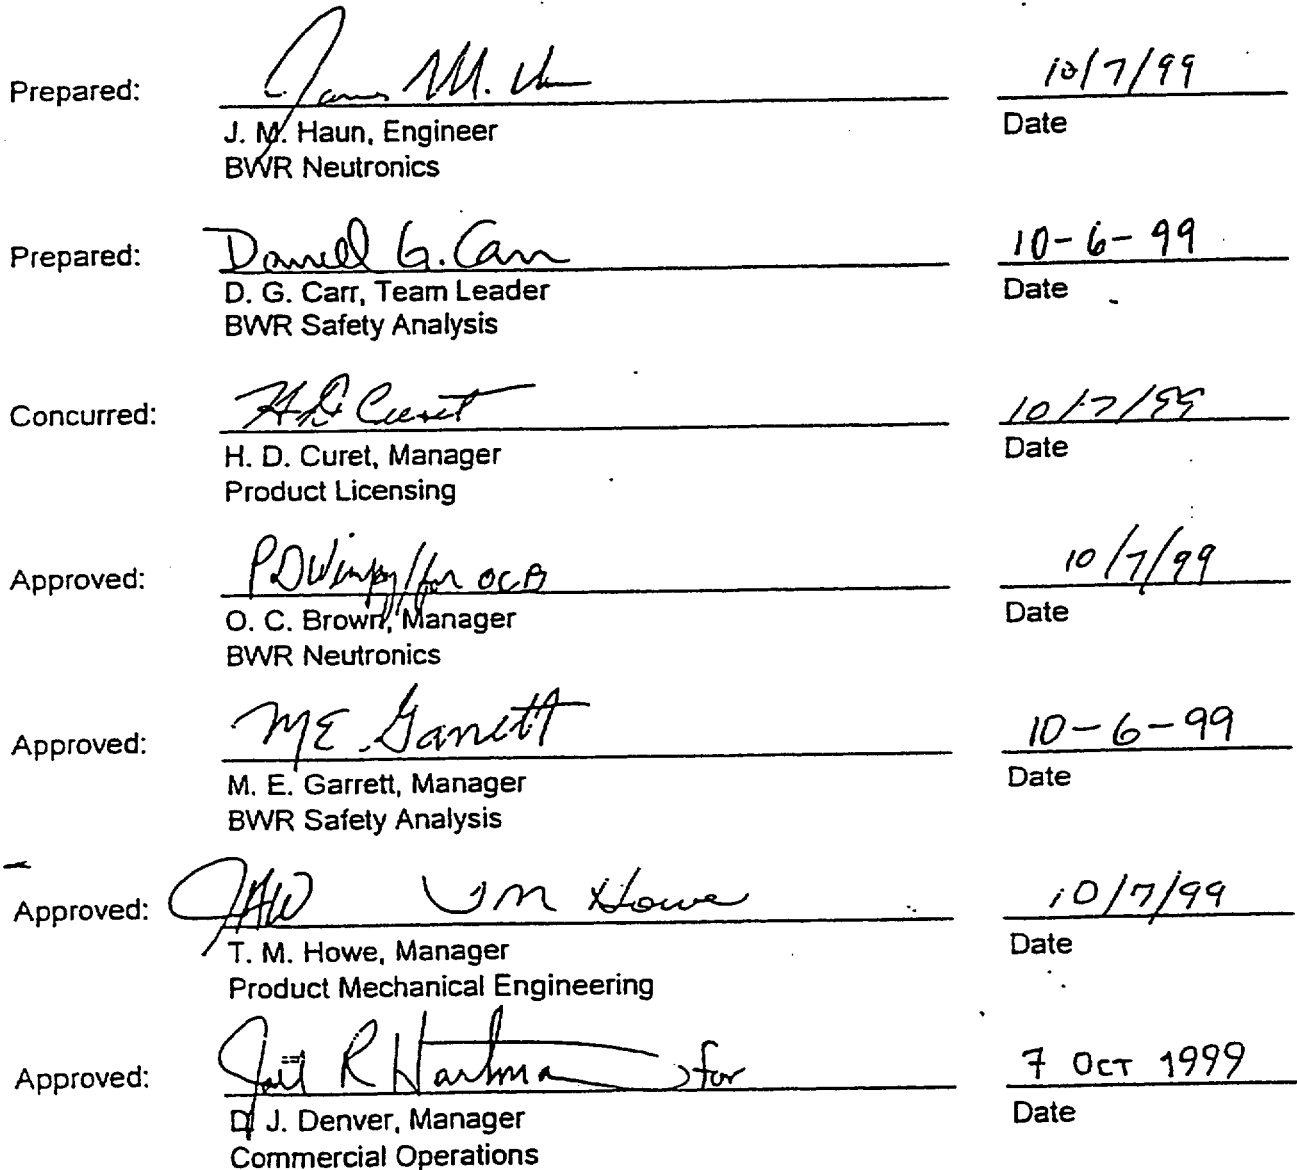 Prepared: James M. Haun 10/7/99
J. M. Haun, Engineer Date
BWR Neutronics
Prepared: Darrell G. Carr 10-6-99
D. G. Carr, Team Leader Date
BWR Safety Analysis
Concurred: H D Curet 10/7/99
H. D. Curet, Manager Date
Product Licensing
Approved: P D Wimpy / for OCB 10/7/99
O. C. Brown, Manager Date
BWR Neutronics
Approved: M E Garrett 10-6-99
M. E. Garrett, Manager Date
BWR Safety Analysis
Approved: T M Howe 10/7/99
T. M. Howe, Manager Date
Product Mechanical Engineering
Approved: R Hartman for 7 OCT 1999
D. J. Denver, Manager Date
Commercial Operations